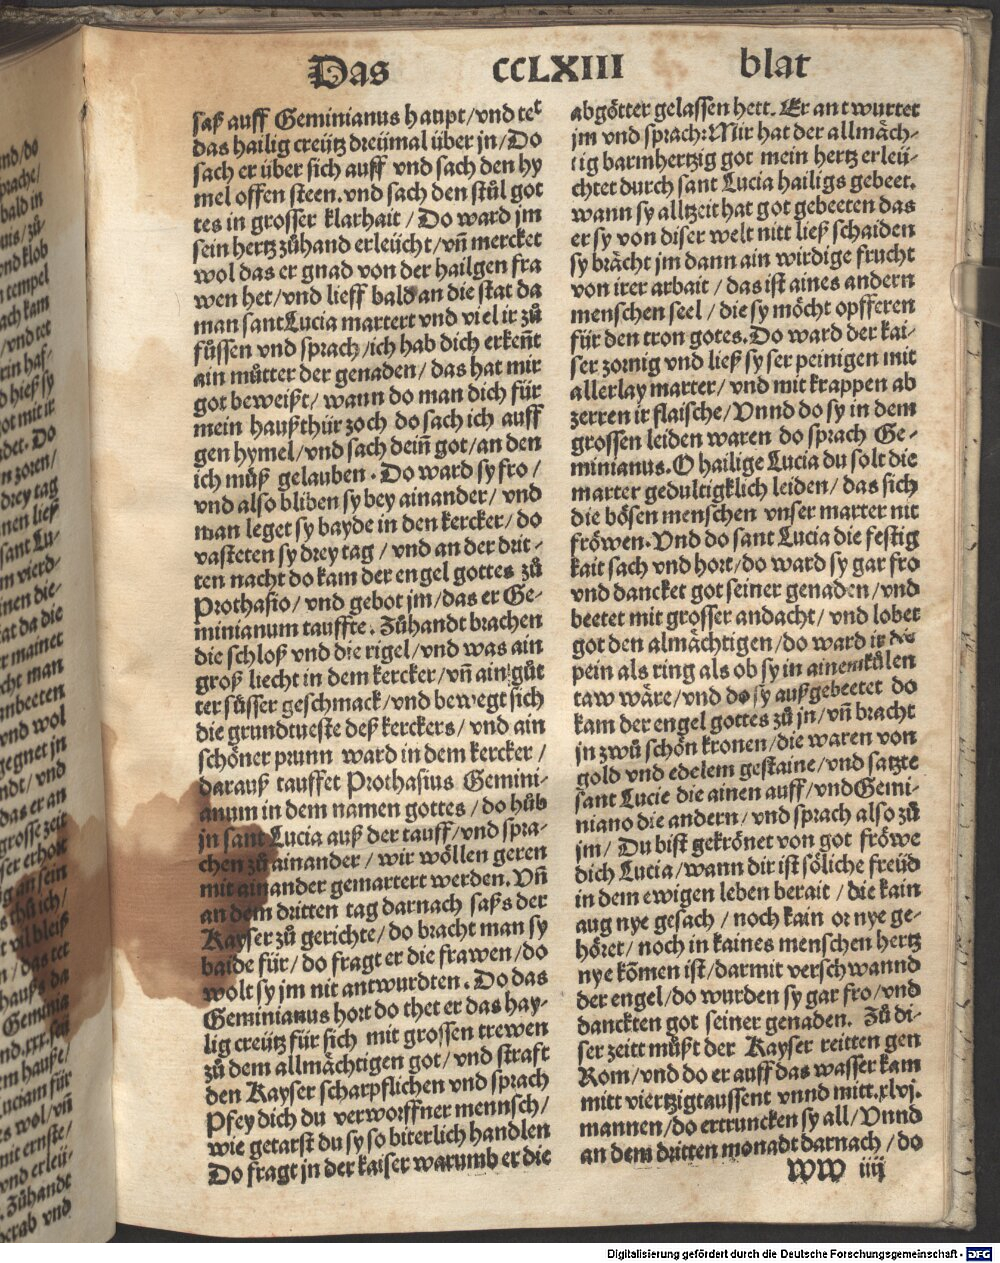 Das CCLXIII blat
saß auff Geminianus haupt/vnd tet
das hailig creütz dreümal über jn/Do
sach er über sich auff vnd sach den hy
mel offen steen.vnd sach den stůl got
tes in grosser klarhait/Do ward jm
sein hertz zůhand erleücht/vñ mercket
wol das er gnad von der hailgen fra
wen het/vnd lieff bald an die stat da
man sant Lucia martert vnd viel ir zů
füssen vnd sprach/ich hab dich erkeñt
ain můtter der genaden/das hat mir
got beweißt/wann do man dich für
mein haußthür zoch do sach ich auff
gen hymel/vnd sach deiñ got/an den
ich můß gelauben. Do ward sy fro/
vnd also bliben sy bey ainander/vnd
man leget sy bayde in den kercker/do
vasteten sy drey tag/vnd an der drit-
ten nacht do kam der engel gottes zů
Prothasio/vnd gebot jm/das er Ge-
minianum tauffte. Zůhandt brachen
die schloß vnd die rigel/vnd was ain
groß liecht in dem kercker/vñ ain gůt
ter süsser geschmack/vnd bewegt sich
die grundtueste deß kerckers/vnd ain
schöner prunn ward in dem kercker/
darauß tauffet Prothasius Gemini-
anum in dem namen gottes/do hůb
jn sant Lucia auß der tauff/vnd spra-
chen zů ainander/wir wöllen geren
mit ainander gemartert werden. Vñ
an dem dritten tag darnach saß der
Kayser zů gerichte/do bracht man sy
baide für/do fragt er die frawen/do
wolt sy jm nit antwurdten. Do das
Geminianus hort do thet er das hay-
lig creütz für sich mit grossen trewen
zů dem allmächtigen got/vnd straft
den Kayser scharpflichen vnd sprach
Pfey dich du verworffner mennsch/
wie getarst du sy so biterlich handlen
Do fragt jn der kaiser warumb er die
abgötter gelassen hett. Er antwurtet
jm vnd sprach:Mir hat der allmäch-
tig barmhertzig got mein hertz erleü-
chtet durch sant Lucia hailigs gebeet.
wann sy alltzeit hat got gebeeten das
er sy von diser welt nitt ließ schaiden
sy brächt jm dann ain wirdige frucht
von irer arbait/das ist aines andern
menschen seel/die sy möcht opfferen
für den tron gotes. Do ward der kai-
ser zornig vnd ließ sy ser peinigen mit
allerlay marter/vnd mit krappen ab
zerren ir flaische/Vnnd do sy in dem
grossen leiden waren do sprach Ge-
minianus. O hailige Lucia du solt die
marter gedultigklich leiden/das sich
die bösen menschen vnser marter nit
fröwen. Vnd do sant Lucia die festig
kait sach vnd hort/do ward sy gar fro
vnd dancket got seiner genaden/vnd
beetet mit grosser andacht/vnd lobet
got den almächtigen/do ward ir die
pein als ring als ob sy in ainem külen
taw wäre/vnd do sy außgebeetet do
kam der engel gottes zů jn/vñ bracht
jn zwů schön kronen/die waren von
gold vnd edelem gestaine/vnd satzte
sant Lucie die ainen auff/vnd Gemi-
niano die andern/vnd sprach also zů
jm/Du bist gekrönet von got fröwe
dich Lucia/wann dir ist söliche freüd
in dem ewigen leben berait/die kain
aug nye gesach/noch kain or nye ge-
höret/noch in kaines menschen hertz
nye kõmen ist/darmit verschwannd
der engel/do wurden sy gar fro/vnd
danckten got seiner genaden. Zů di-
ser zeitt můßt der Kayser reitten gen
Rom/vnd do er auff das wasser kam
mitt viertzigtaussent vnnd mitt.xlvj.
mannen/do ertruncken sy all/Vnnd
an dem dritten monadt darnach/do
WW iiij
Digitalisierung gefördert durch die Deutsche Forschungsgemeinschaft - DFG